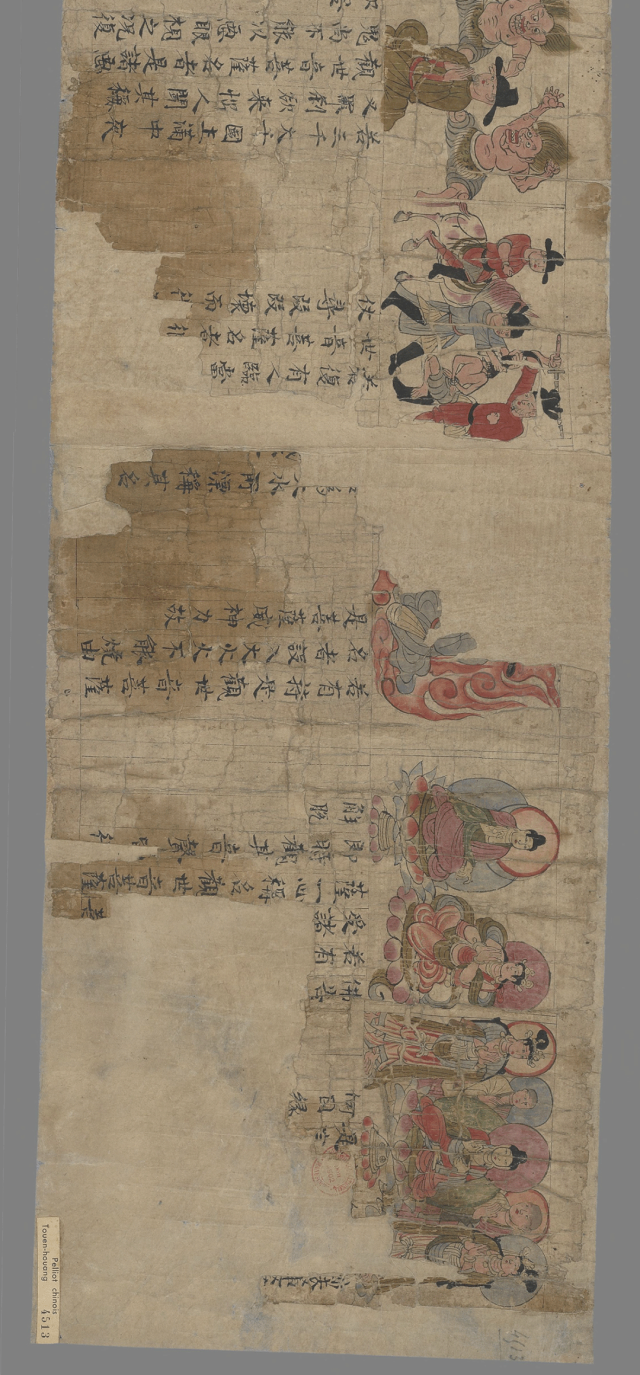 何因緣
佛告
若有
受諸
薩一心稱名觀世音菩薩
即時觀其音聲
解脫
若有持是觀世音菩薩
名者設入大火火不能燒由
是菩薩威神力故
大水所漂稱其名
若復有人臨當
世音菩薩名者彼
仗尋段段壞而
若三千大千國土滿中夜
叉羅剎欲来惱人聞其稱
觀世音菩薩名者是諸惡
鬼尚不能以惡眼視之况復
Pelliot chinois
Touen-houang
4513
4513